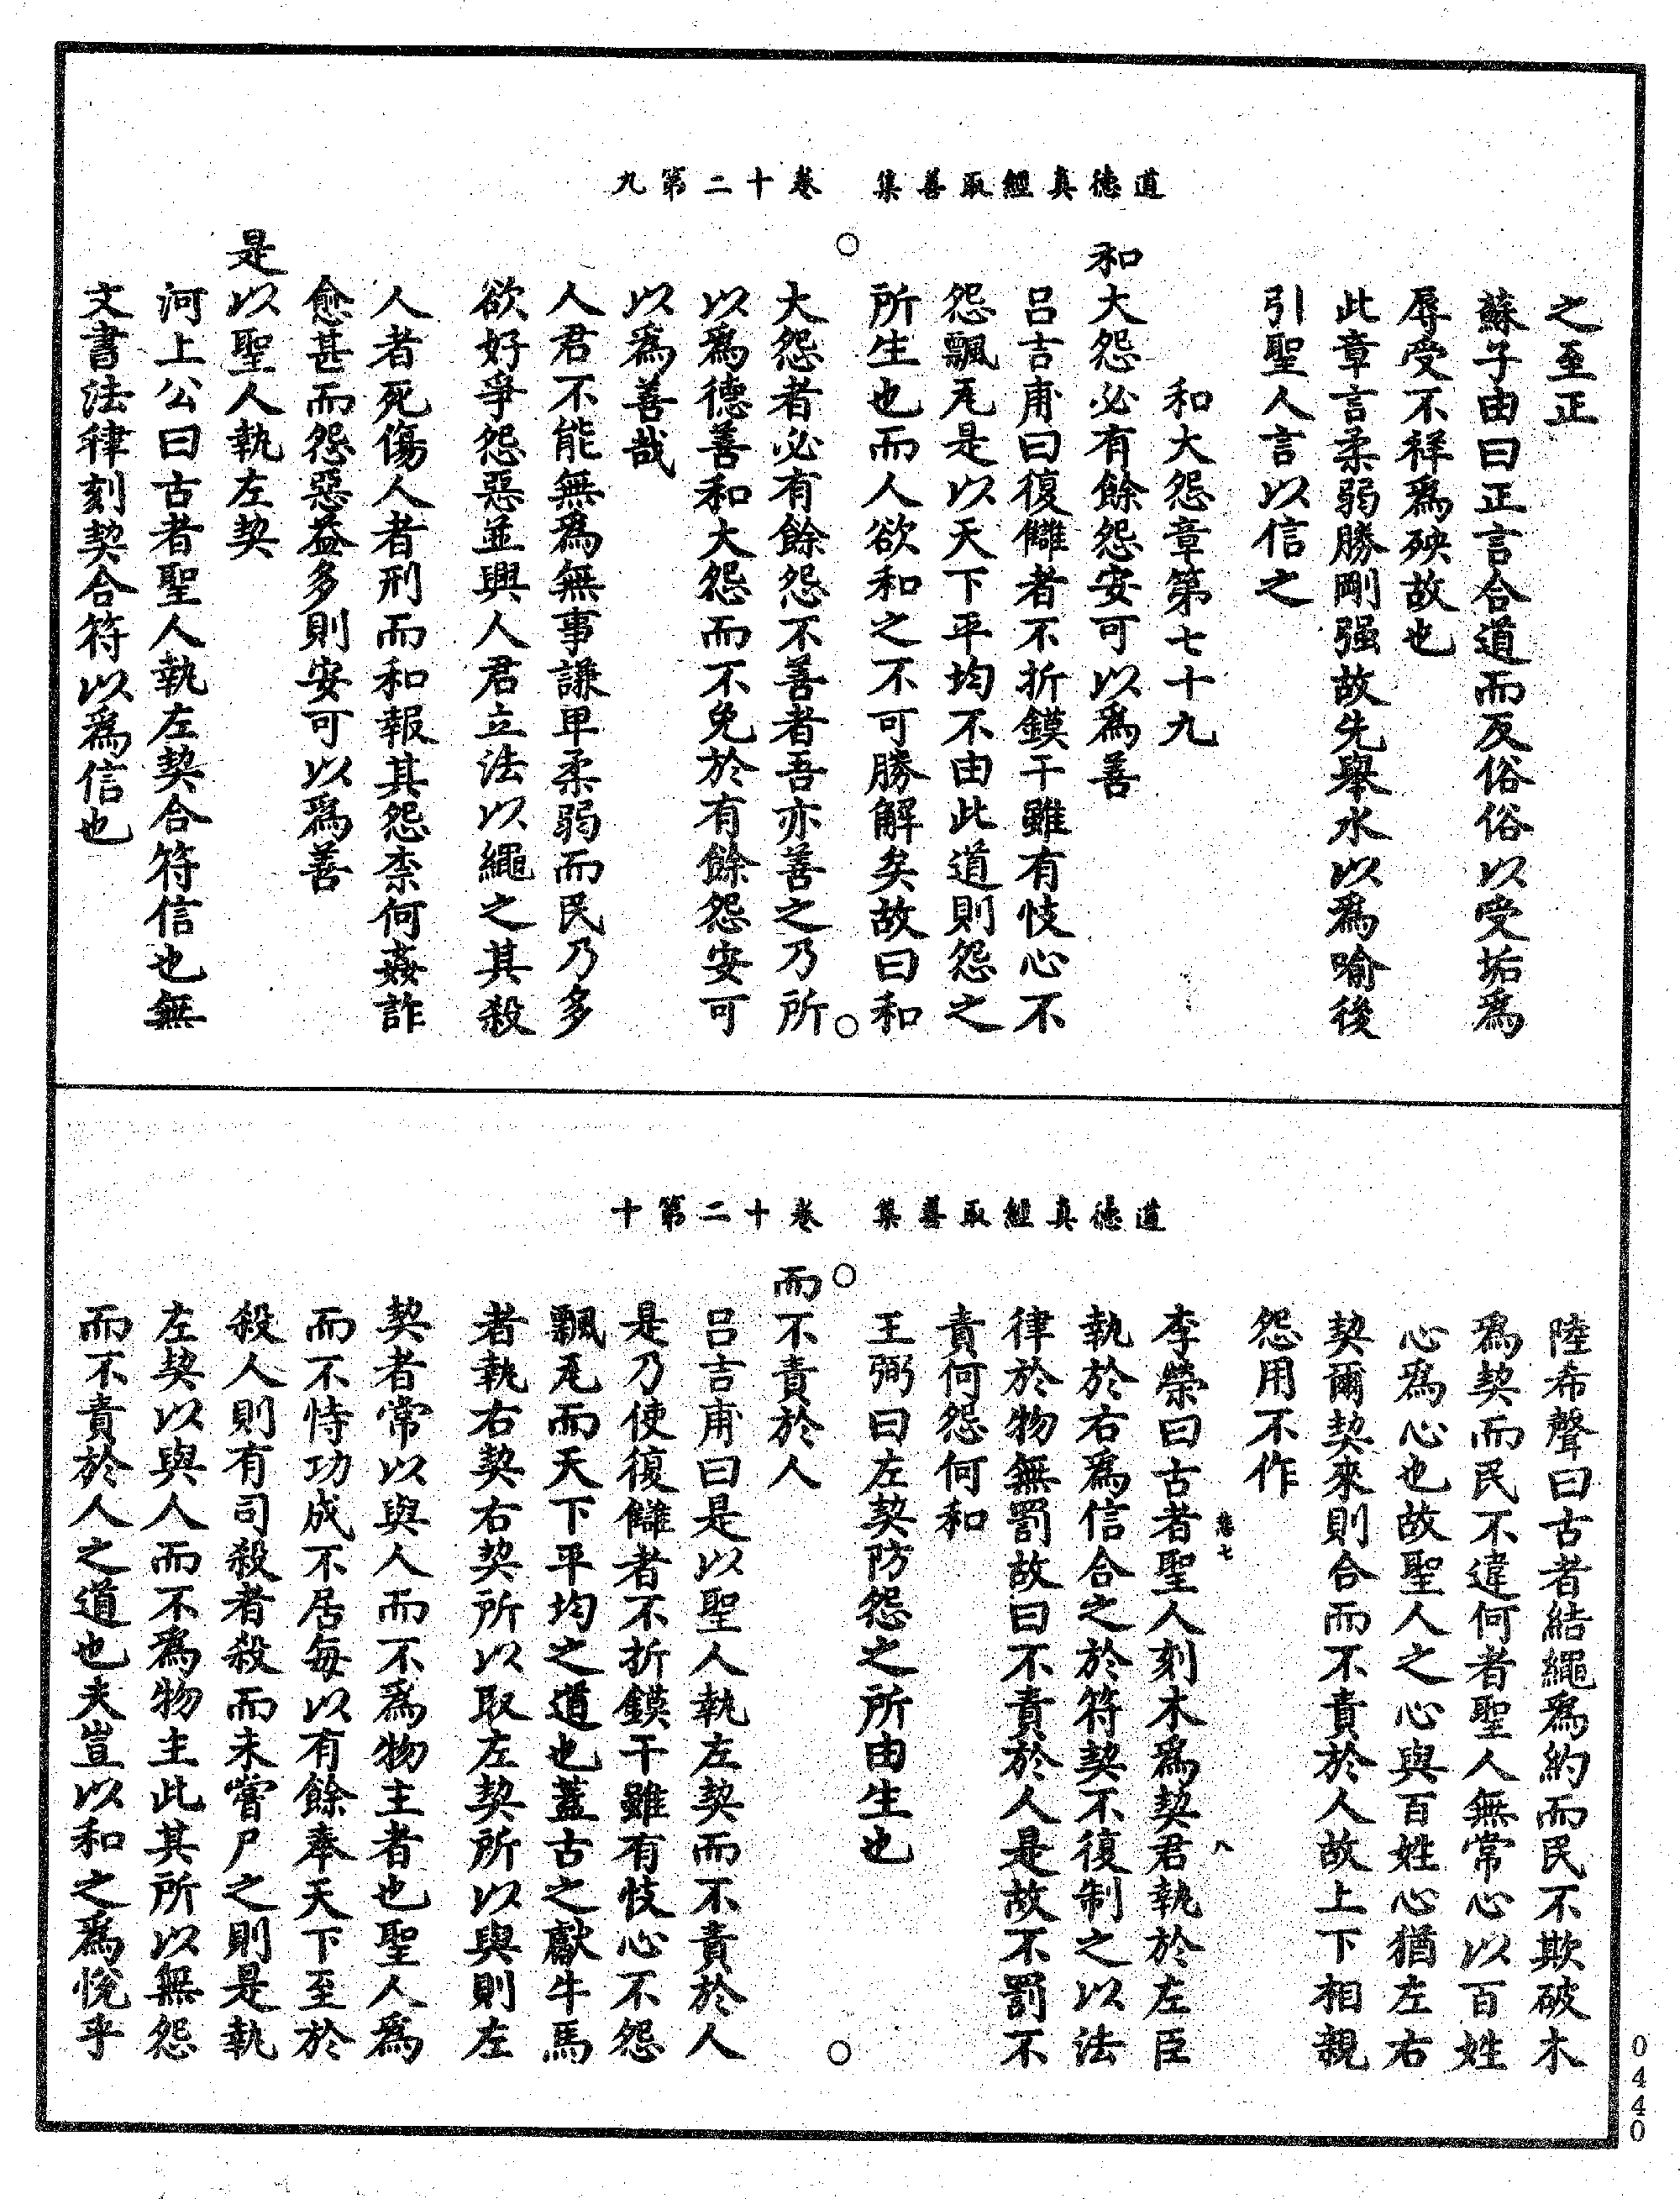 道德真經取善集　卷十二第九
之至正
蘇子由曰正言合道而反俗俗以受垢爲
辱受不祥爲殃故也
此章言柔弱勝剛强故先舉水以爲喻後
引聖人言以信之
和大怨章第七十九
和大怨必有餘怨安可以爲善
呂吉甫曰復讎者不折鏌干雖有忮心不
怨飄瓦是以天下平均不由此道則怨之
所生也而人欲和之不可勝解矣故曰和
大怨者必有餘怨不善者吾亦善之乃所
以爲德善和大怨而不免於有餘怨安可
以爲善哉
人君不能無爲無事謙卑柔弱而民乃多
欲好爭怨惡並興人君立法以繩之其殺
人者死傷人者刑而和報其怨柰何姦詐
愈甚而怨惡益多則安可以爲善
是以聖人執左契
河上公曰古者聖人執左契合符信也無
文書法律刻契合符以爲信也
道德真經取善集　卷十二第十
陸希聲曰古者結繩爲約而民不欺破木
爲契而民不違何者聖人無常心以百姓
心爲心也故聖人之心與百姓心猶左右
契爾契來則合而不責於人故上下相親
怨用不作
七
八
李榮曰古者聖人刻木爲契君執於左臣
執於右爲信合之於符契不復制之以法
律於物無罰故曰不責於人是故不罰不
責何怨何和
王弼曰左契防怨之所由生也
而不責於人
呂吉甫曰是以聖人執左契而不責於人
是乃使復讎者不折鏌干雖有忮心不怨
飄瓦而天下平均之道也蓋古之獻牛馬
者執右契右契所以取左契所以與則左
契者常以與人而不爲物主者也聖人爲
而不恃功成不居每以有餘奉天下至於
殺人則有司殺者殺而未嘗尸之則是執
左契以與人而不爲物主此其所以無怨
而不責於人之道也夫豈以和之爲悅乎
0440